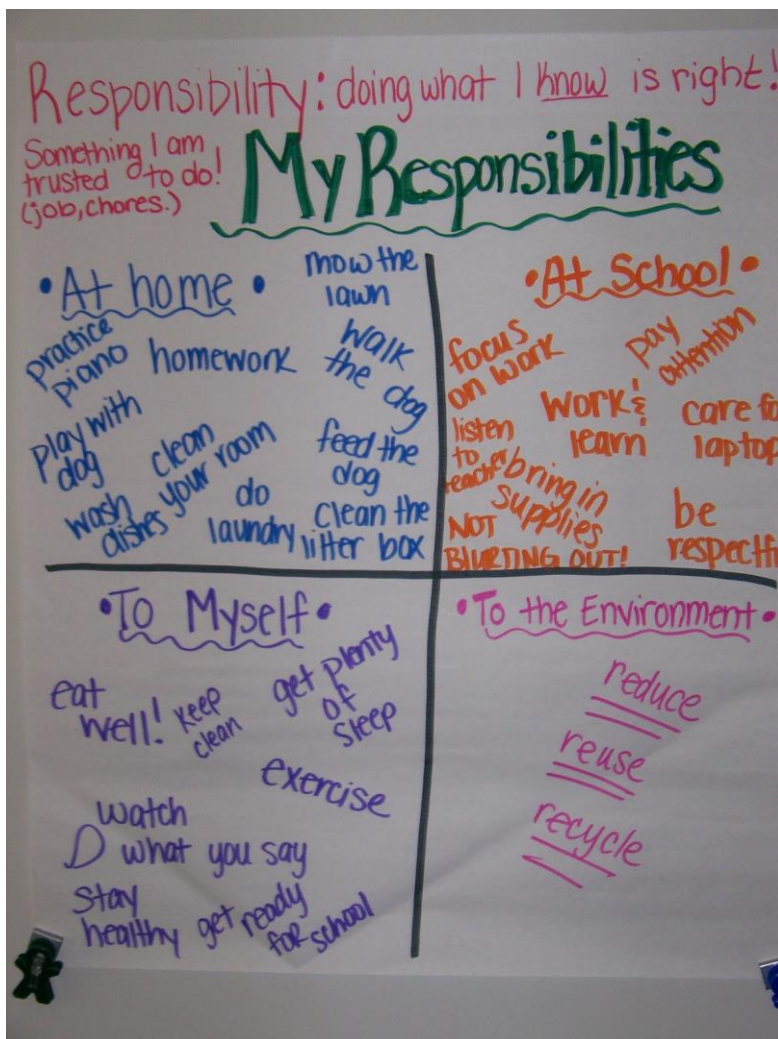 Responsibility: doing what I know is right!
Something I am
trusted to do!
(job, chores.)
My Responsibilities
• At home •
mow the
lawn
practice
piano
homework
walk
the dog
play with
dog
clean
your room
feed the
dog
wash
dishes
do
laundry
clean the
litter box
• At School •
focus
on work
pay
attention
work &
learn
care f
laptop
listen
to
teacher
bring in
supplies
NOT
BLURTING OUT!
be
respectf
• To Myself •
eat
well!
keep
clean
get plenty
of
sleep
exercise
watch
what you say
stay
healthy
get ready
for school
• To the Environment •
reduce
reuse
recycle